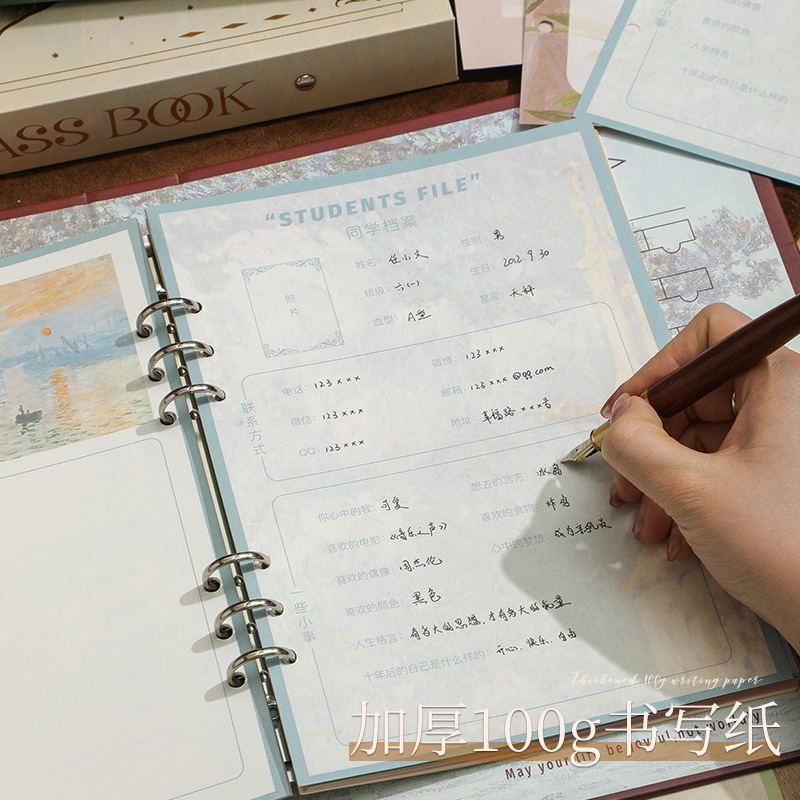 ASS BOOK
喜欢的偶像:
喜欢的颜色:
人生格言:
十年后的自己是什么样的
些小事
“STUDENTS FILE”
同学档案
照片
姓名: 任小文
性别: 男
班级: 六(一)
生日: 2012.9.30
血型: A型
星座: 天秤
联系方式
电话: 123×××
微博: 123×××
微信: 123×××
邮箱: 123×××@qq.com
QQ: 123×××
地址: 幸福路×××号
一些小事
你心中的我: 可爱
想去的远方: 冰岛
喜欢的电影: 《音乐之声》
喜欢的食物: 炸鸡
喜欢的偶像: 周杰伦
心中的梦想: 成为宇航员
喜欢的颜色: 黑色
人生格言: 有多大的思想,才有多大的能量
十年后的自己是什么样的: 开心、快乐、自由
Thickened 100g writing paper
加厚100g书写纸
May your life be joyful, not worldly